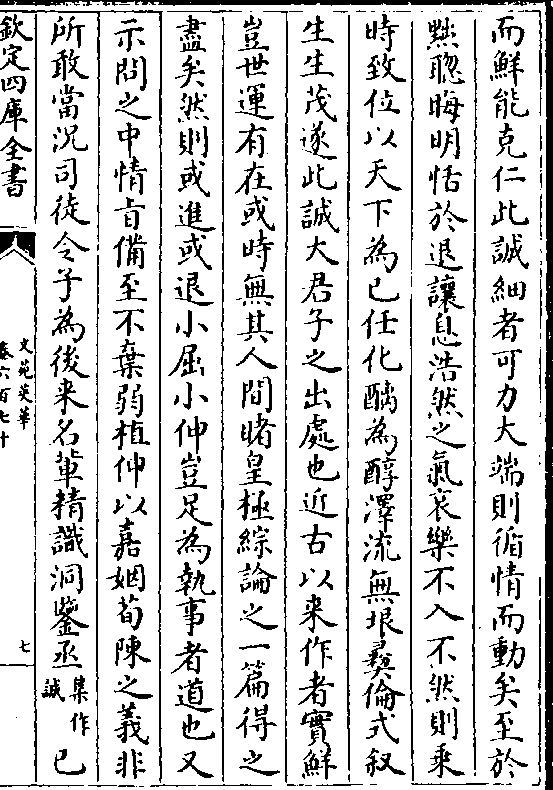 而鮮能克仁此誠細者可力大端則循情而動矣至於
黜聰晦明恬於退讓息浩然之氣哀樂不入不然則乗
時致位以天下為己任化醨為醇澤流無垠彛倫式叙
生生茂遂此誠大君子之出處也近古以來作者實鮮
豈世運有在或時無其人間睹皇極綜論之一篇得之
盡矣然則或進或退小屈小伸豈足為執事者道也又
示問之中情旨備至不棄弱植伸以嘉姻荀陳之義非
所敢當況司徒令子為後来名軰精識洞鑒丞集作誠已
欽定四庫全書
文苑英華
卷六百七十
七